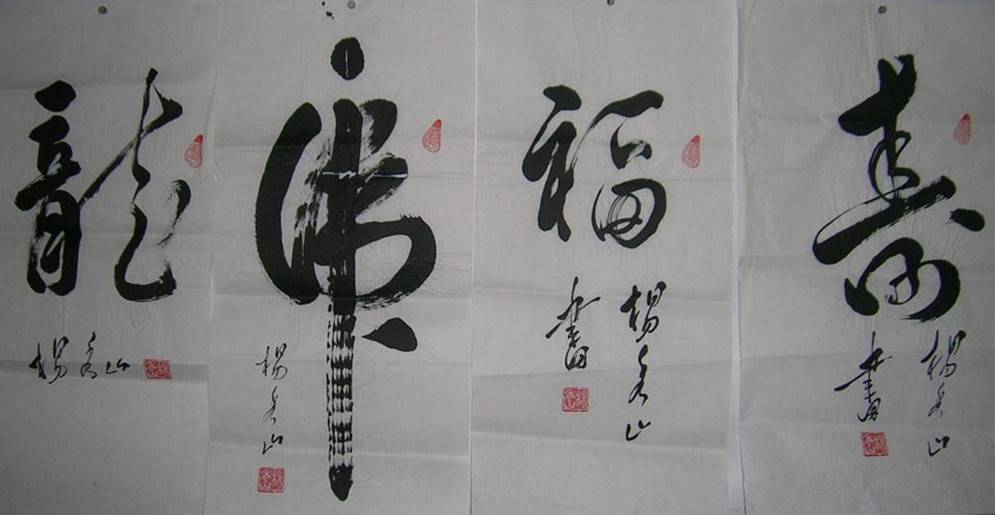 龍
楊秀山
虎
楊秀山
福
楊秀山
書
壽
楊秀山
書